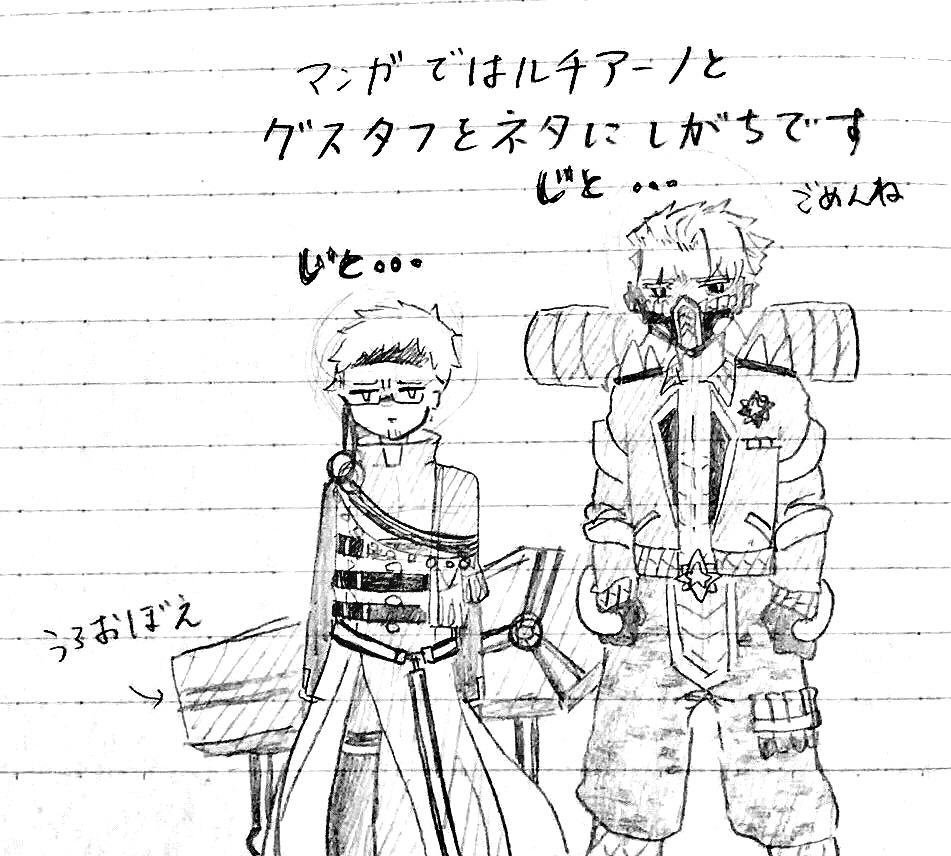 マンガではルチアーノと
グスタフをネタにしがちです
じと...
ごめんね
じと...
うろおぼえ